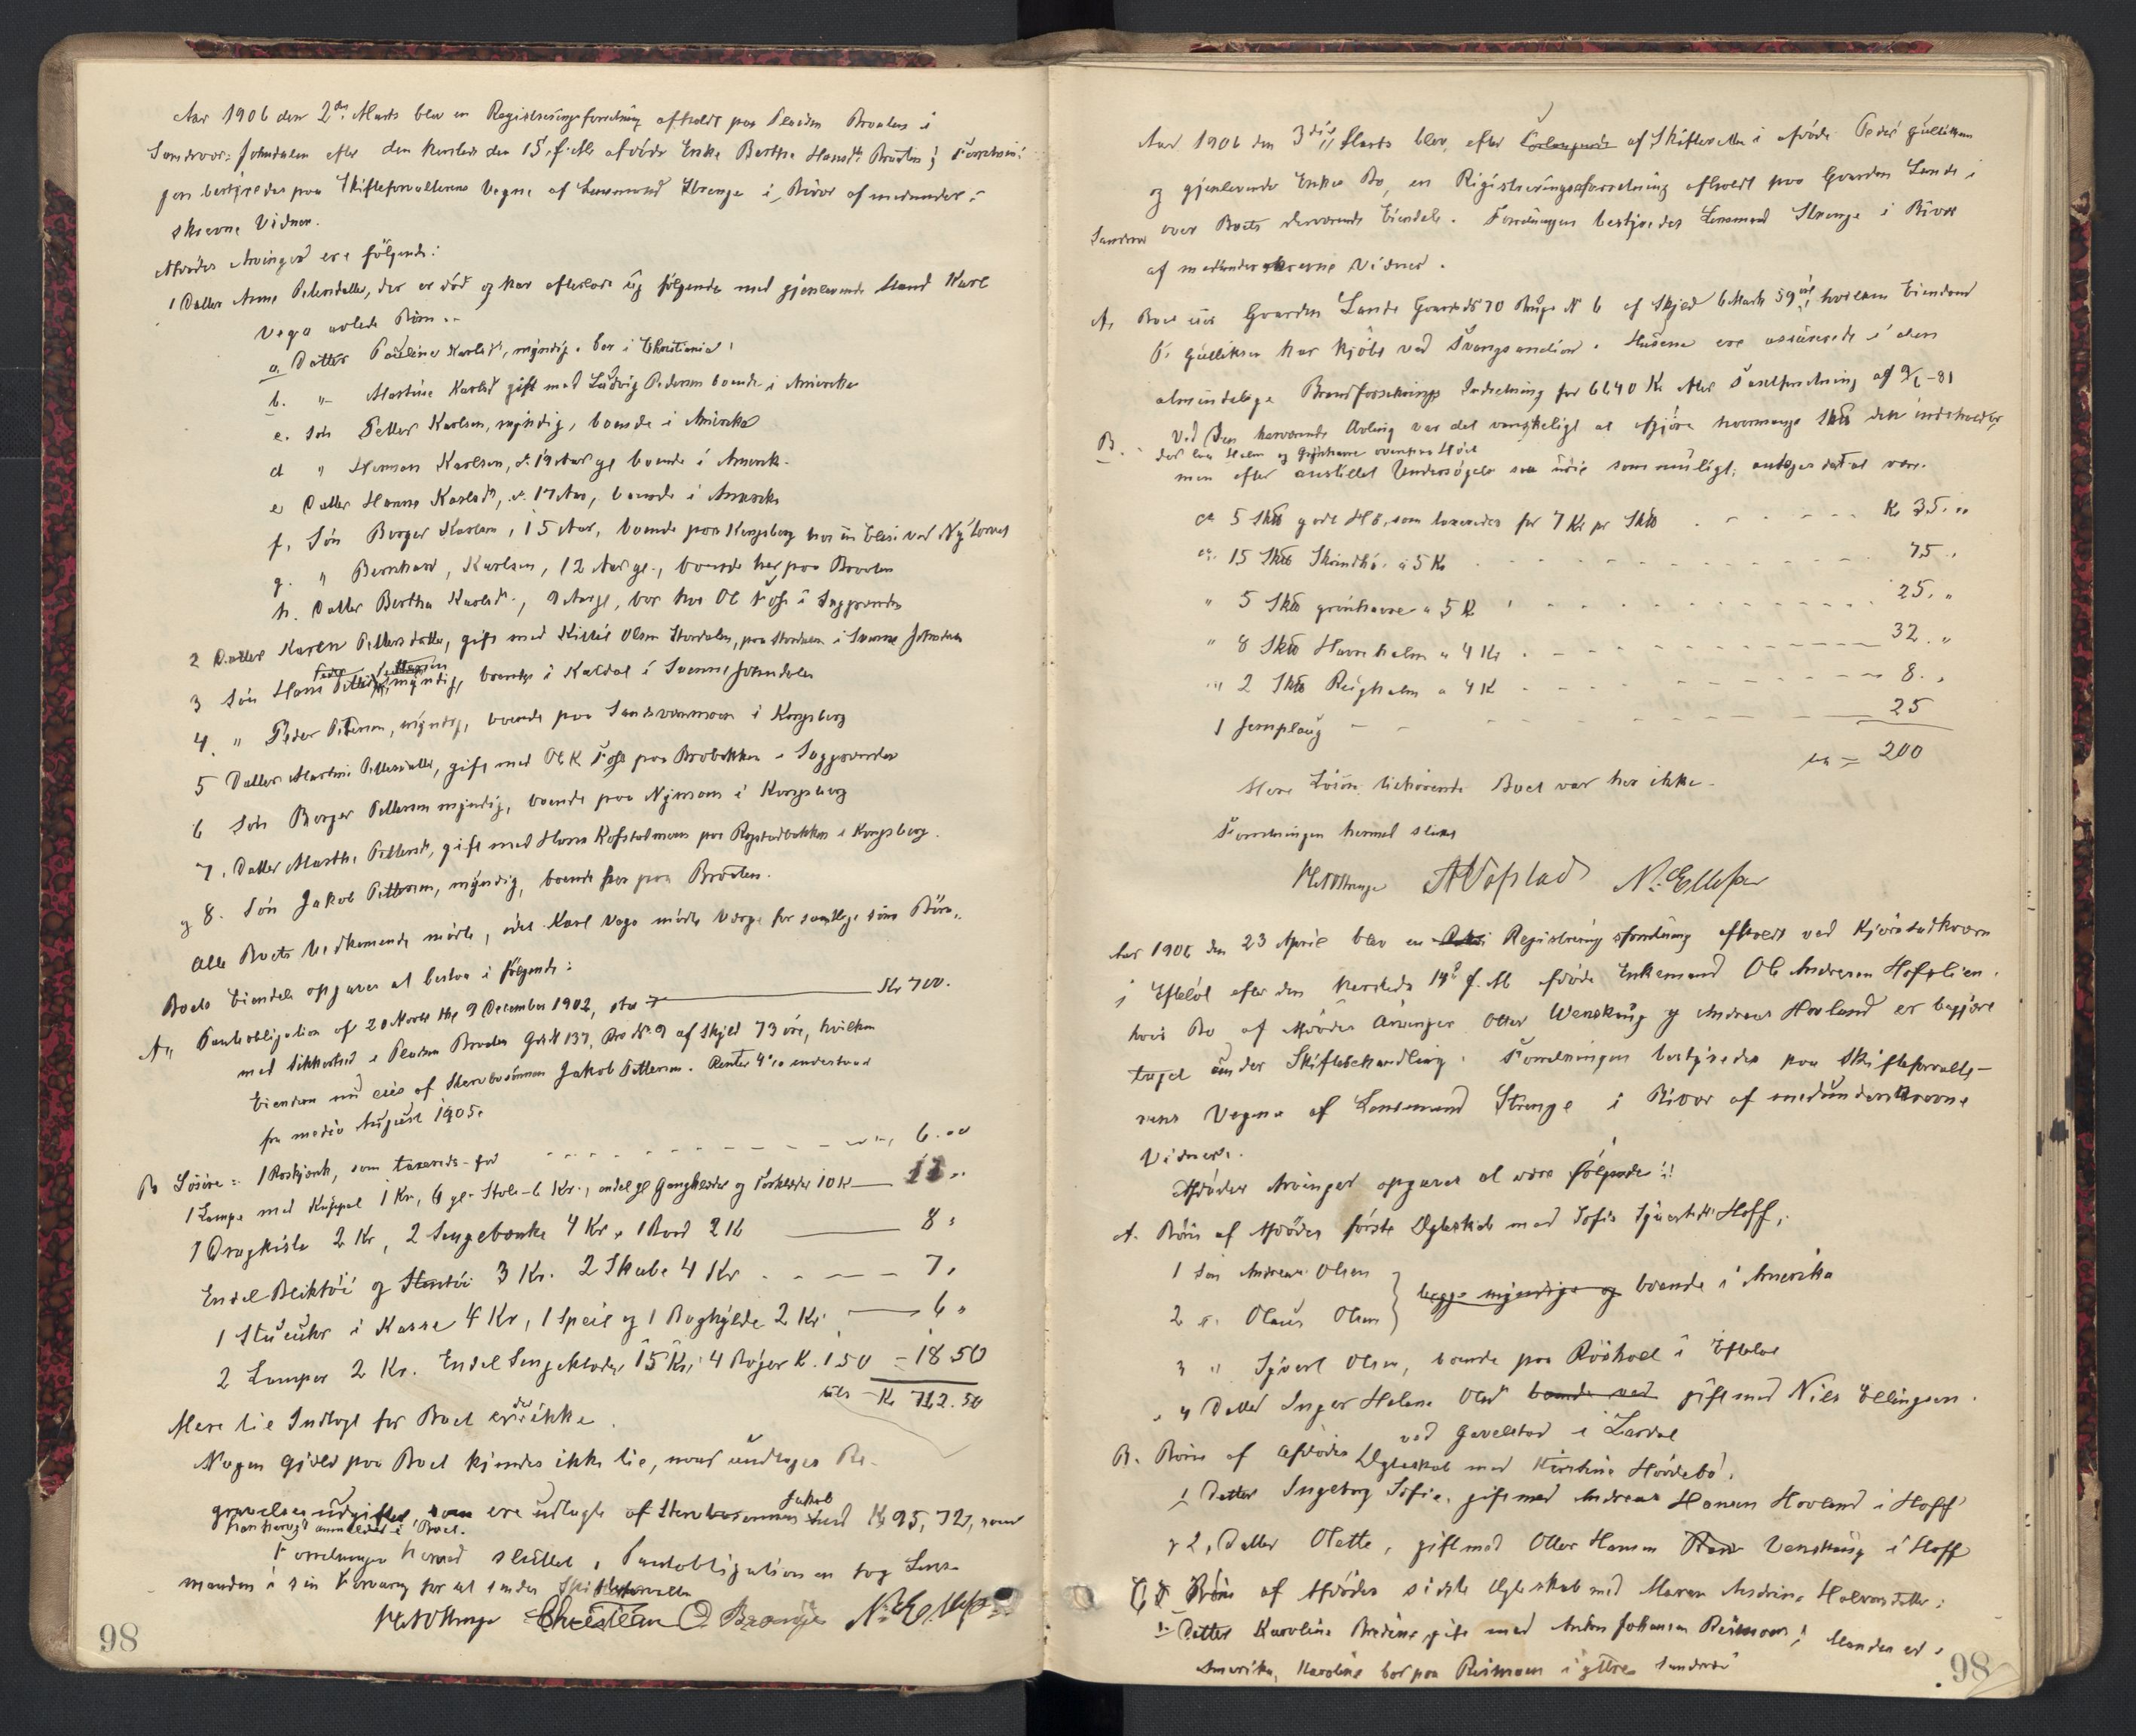 Aar 1906 den 2den Marts blev en Registreringsforretning afholdt paa Pladsen Braaten i
Sandsvær: Jondalen efter den hersteds den 15 f. Mts afdøde Enke Berthe Hansdt Braaten; Forretnin-
gen bestyredes paa Skifteforvalterens Vegne af Lensmand Strenge i Bivær af medunder-
skrevne Vidner.
Afdødes Arvinger ere følgende:
1 Datter Anne Petersdatter, der er død og har efterladt sig følgende med gjenlevende Mand Karl
Vego avlede Børn:
a. Datter Pauline Karlsdt, myndig, bor i Christiania
b. " Martine Karlsd gift med Ludvig Pedersen boende i Amerika
c. Søn Petter Karlsen, myndig, boende i Amerika
d " Herman Karlsen, 19 Aar gl boende i Amerik.
e Datter Hanna Karlsdt, 17 Aar, boende i Amerika
f. Søn Borger Karlsen, 15 Aar, boende paa Kongsberg hos ved Nytorvet
g. " Bernhard, Karlsen, 12 Aar gl., boende her paa Braaten
h. Datter Bertha Karlsdt., 9 Aar gl, bor hos Ol Foss i Saggrenden
2 Datter Karen Pettersdatter, gift med Kittil Olsen Stordalen, paa Stordalen i Svenne Jondalen
3 Søn Hans Pettersen, myndig, boende i Kaldal i Svenne Jondalen
4. " Peder Pettersen, myndig, boende paa Sandsværmoen i Kongsberg
5 Datter Martine Pettersdatter, gift med Ol K Foss paa Brobakken i Saggrenden
6 Søn Borger Pettersen myndig, boende paa Nymoen i Kongsberg
7. Datter Marthe Pettersdt, gift med Hans Kofstadmoen paa Rogstadbakken i Kongsberg.
og 8. Søn Jakob Pettersen, myndig, boende her paa Braaten.
Alle Boets Vedkommende mødte, idet Karl Vego mødte Værge for samtlige sine Børn.
Boets Eiendele opgaves at bestaa i følgende:
A, Panteobligation af 20 Novbr thg 9 December 1902, stor Kr 700.
med Sikkerhed i Pladsen Braaten Grd N 137, Bro Nr. 9 af Skjyld 73 øre, hvilken
Eiendom nu eies af Stervbosønnen Jakob Pettersen. Renter 4% indestaar
fra medio August 1905.
B Løsøre: 1 Roskjenk, som taxeredes for 6.00
1 Lampe med Kuppel 1 Kr, 6 gl. Stole 6 Kr., endel gl Gangklæder og Forklæder 10 Kr
1 Dragkiste 2 Kr, 2 Sengebænke 4 Kr, 1 Bord 2 Kr 8 "
Endel Bliktøi og Stentøi 3 Kr. 2 Skabe 4 Kr 7,
1 Stueuhr i Kasse 4 Kr, 1 Speil og 1 Boghylde 2 Kr 6 "
2 Lamper 2 Kr. Endel Sengeklæder 15 Kr, 4 Bøger Kr. 1,50 = 18.50
tils Kr 762.50
Mere til Indtægt for Boet er der ikke.
Nogen Gjæld paa Boet kjendes ikke til, naar undtages Be-
gravelsesudgifter, som ere udlagte af Stervbosønnen Jakob med Kr 95,72, som
han herved anmelder i Boet.
Forretningen hermed sluttet, Panteobligationen tog Lens-
manden i sin Forvaring for at sendes Skifteforvalter
Strenge Christian O Braaten N. Ellefsen
98
Aar 1906 den 3die Marts blev, efter Forlangende af Skifteretten i afdøde Peder Gulliksen
og gjenlevende Enkes Bo, en Registreringsforretning afholdt paa Gaarden Lande i
Sandsvær over Boets derværende Eiendele. Forretningen bestyredes Lensmand Strenge i Bivær
af medunderskrevne Vidner.
A, Boet eier Gaarden Lande Gaards N 70 Brugs N 6 af Skjyld 6 Mark 59 øre, hvilken Eiendom
P. Gulliksen har kjøbt ved Tvangsauction. Husene ere assurerede i den
almindelige Brandforsikrings Indretning for 6640 Kr efter Taxtforretning af 9/6-81
B. Ved den herværende Avling var det vanskeligt at afgjøre hvormange Sk℔ den indeholder,
der laa Halm og Grønhavre ovenpaa Høiet
men efter anstillet Undersøgelse saa vidt som muligt, antoges det at være.
ca 5 Sk℔ godt Hø, som taxeredes for 7 Kr pr Sk℔ Kr 35. "
ca. 15 Sk℔ Skrindhø à 5 Kr 75.
" 5 Sk℔ grønhavre a 5 Kr 25. "
" 8 Sk℔ Havrehalm a 4 Kr 32. "
" 2 Sk℔ Rughalm a 4 Kr 8. "
1 Jernploug 25
= 200
Mere Løsøre tilhørende Boet var her ikke.
Forretningen hermed sluttet
Strenge N. Ellefsen
Aar 1906 den 23 April blev en Registreringsforretning afholdt ved Kjørstadkværn
i Efteløt efter den hersteds 14de f. M afdøde Enkemand Ole Andersen Hofslien,
hvis Bo af Afdødes Arvinger Otter Wenskaug og Andreas Hovland er begjært
taget under Skiftebehandling. Forretningen bestyredes paa Skifteforvalte-
rens Vegne af Lensmand Strenge i Bivær af medunderskrevne
Vidner.
Afdødes Arvinger opgaves at være følgende:
A. Børn af Afdødes første Ægteskab med Sofie Sjuertsdt Hoff,
1 Søn Andreas Olsen
2 " Olaus Olsen } begge myndige og boende i Amerika
3 " Sjuert Olsen, boende paa Røshoel i Efteløt
4 Datter Inger Helene Olsdt boende ved gift med Nils Ellingsen
ved Gavelstad i Lardal
B. Børn af Afdødes Ægteskab med Kirstine Hørdebø.
1 Datter Ingeborg Sofie, gift med Andreas Hansen Hovland i Hoff
og 2, Datter Olette, gift med Otter Hansen Venskaug i Hoff
C, Børn af Afdødes sidste Ægteskab med Maren Andrine Halvorsdatter:
1. Datter Karoline Bredine, gift med Anton Johansen Reismoen; Manden er i
Amerika, Karoline bor paa Reismoen i yttre Sandsvær
98